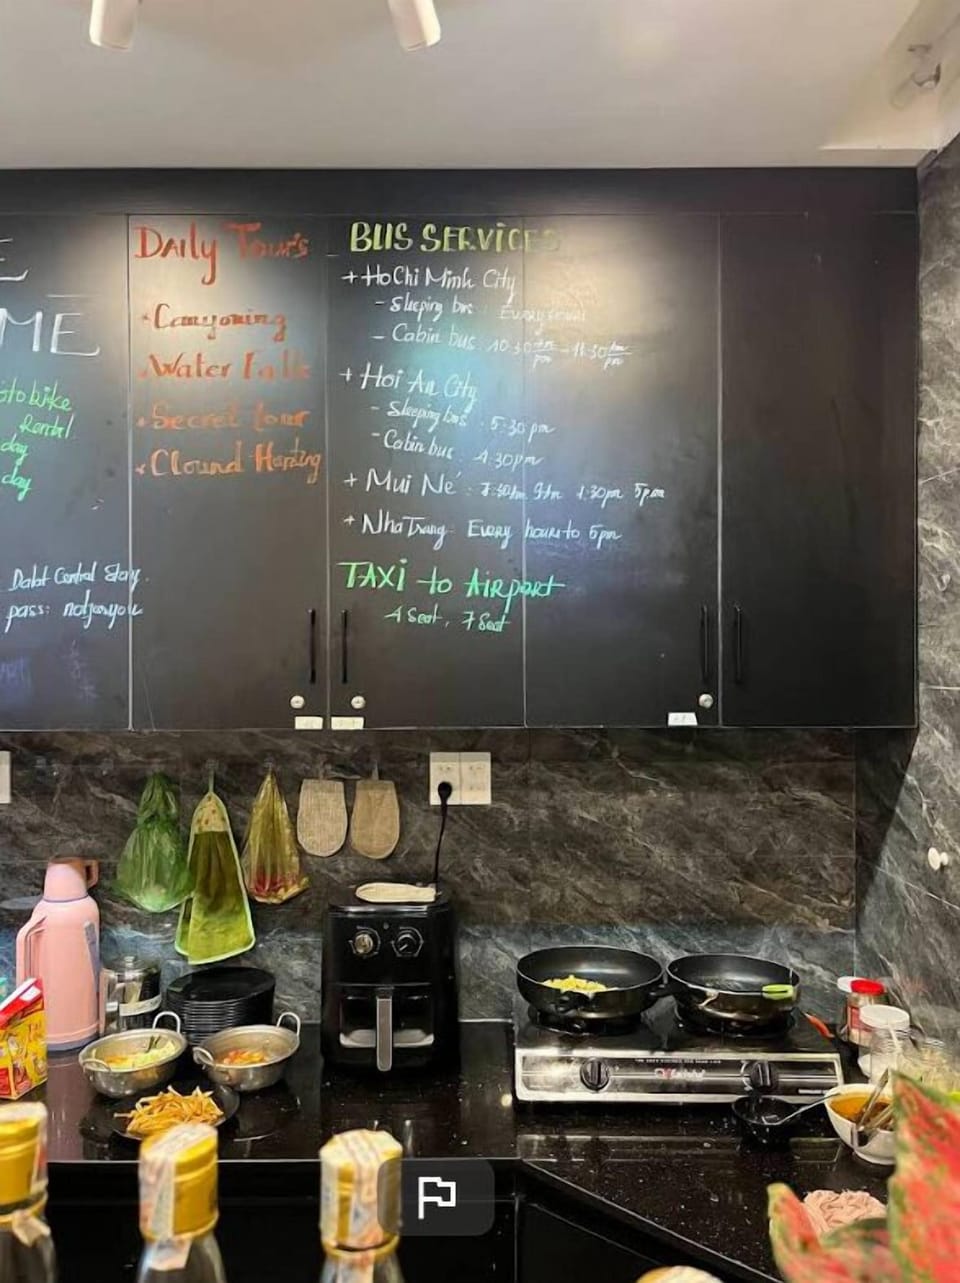 ME
Rental
day
day
Dalat Central Stay
pass:
Daily Tour's
* Canyoning
Water Falls
* Secret tour
* Clound Hunting
BUS SERVICES
+ Ho Chi Minh City
- Sleeping bus : Every hour
- Cabin bus: 10:30 am/pm - 11:30 am/pm
+ Hoi An City
- Sleeping bus : 5:30 pm
- Cabin bus : 4:30pm
+ Mui Né : 7:30am 9Am 1:30pm 5pm
+ Nha Trang: Every hours to 5pm
TAXI to AIRport
4 Seat, 7 Seat